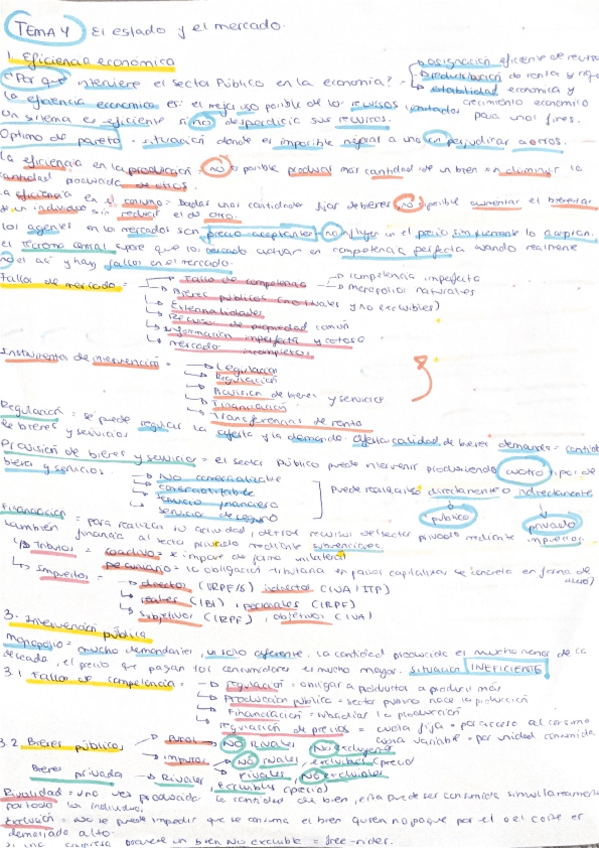 TEMA 4 El estado y el mercado.
1. Eficiencia económica
¿Por qué interviene el sector Público en la economía? → asignación eficiente de recursos
→ redistribución de renta y riqueza
→ estabilidad económica y crecimiento económico
La eficiencia económica es: el mejor uso posible de los recursos limitados para unos fines.
Un sistema es eficiente si no desperdicia sus recursos.
Optimo de pareto = situación donde es imposible mejorar a uno sin perjudicar a otros.
La eficiencia en la producción = no es posible producir más cantidad de un bien sin disminuir la
cantidad producida de otros.
La eficiencia en el consumo = Dadas unas cantidades fijas de bienes, no es posible aumentar el bienestar
de un individuo sin reducir el de otro.
Los agentes en los mercados son precio aceptantes, no influyen en el precio simplemente lo aceptan.
el teorema central supone que los mercados actuan en competencia perfecta cuando realmente
no es así y hay fallos en el mercado.
Fallos de mercado = → Fallo de competencia → competencia imperfecta
→ monopolios naturales
→ Bienes públicos (no rivales y no excluibles)
→ Externalidades
→ Recursos de propiedad común
→ Información imperfecta y costosa
→ mercados incompletos
Instrumentos de intervención = → Legislación
→ Regulación
→ Provisión de bienes y servicios
→ Financiación
→ Transferencias de renta
Regulación = se puede regular la oferta y la demanda. oferta = calidad de bienes demanda = cantidad
de bienes y servicios
Provisión de bienes y servicios = el sector Público puede intervenir produciendo cuatro tipos de
bienes y servicios. → No comercializable
→ comercializable
→ Servicio financiero
→ Servicio de seguro
Puede realizarlos directamente o indirectamente
público privado
Financiación = para realizar su actividad, obtiene recursos del sector privado mediante impuestos.
también financia al sector privado mediante subvenciones.
→ Tributos = coactivo = se impone de forma unilateral
pecuniario = la obligación tributaria en países capitalistas se concreta en forma de
→ Impuestos = → directos (IRPF/IS) indirectos (IVA/ITP)
→ reales (IBI), personales (IRPF)
→ subjetivos (IRPF), objetivos (IVA)
3. Intervención pública
Monopolio = mucho demandantes, un solo oferente, la cantidad producida es mucho menor de la
deseada, el precio que pagan los consumidores es mucho mayor. Situación INEFICIENTE
3.1 Fallos de competencia = → Regulación = obligar a productor a producir más
→ Producción pública = sector público hace la producción
→ Financiación = subsidiar la producción
→ Regulación de precios = cuota fija = por acceso al consumo
cuota variable = por unidad consumida
3.2 Bienes públicos → Puros → NO rivales, No excluyente
→ impuros → NO rivales, excluibles (precio)
→ rivales, NO excluibles
Bienes privada → Rivales, excluibles (precio)
Rivalidad = una vez producida la cantidad del bien, esta puede ser consumida simultaneamente
por todos los individuos.
Exclusión = No se puede impedir que se consuma el bien quien no pague por el o el coste es
demasiado alto.
Si una empresa produce un bien No excluible = free-rider.